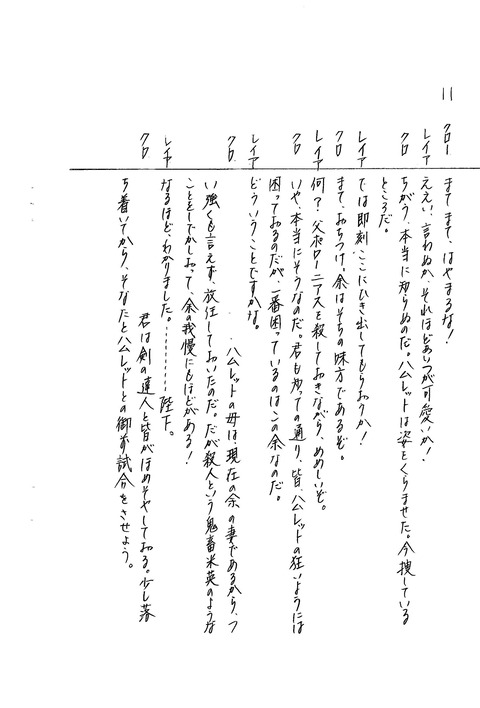 11
クロー まてまて、はやまるな！
レイア ええい、言わぬか、それほどあいつが可愛いか！
クロ ちがう、本当に知らぬのだ。ハムレットは姿をくらませた。今捜している
ところだ。
レイア では即刻ここにひき出してもらおうか！
クロ まて、おちつけ。余はそちの味方であるぞ。
レイア 何？父ポローニアスを殺しておきながら、めめしいぞ。
クロ いや、本当にそうなのだ。君も知っての通り、皆、ハムレットの狂いようには
困っておるのだが、一番困っているのはこの余なのだ。
レイア どういうことですかな。
クロ ハムレットの母は、現在の余の妻であるから、つ
い強くも言えず、放任しておいたのだ。だが殺人という鬼畜米英のような
ことをしでかしおって、余の我慢にもほどがある！
レイア なるほど、わかりました。………陛下。
クロ 君は剣の達人と皆がほめそやしておる。少し落
ち着いてから、そなたとハムレットとの御前試合をさせよう。